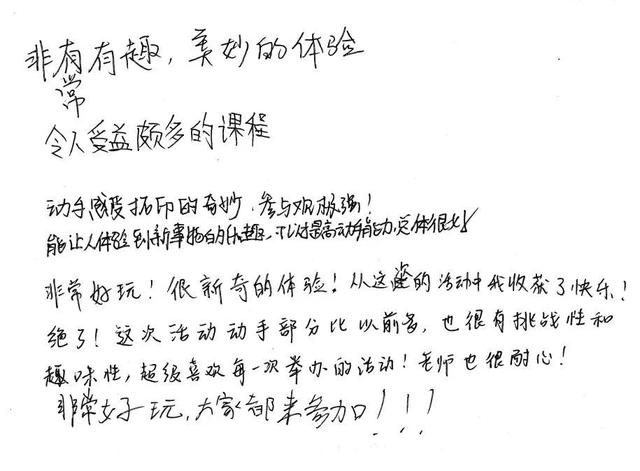 非有有趣，美妙的体验
常
令人受益颇多的课程
动手感受拓印的奇妙，参与观感强！
能让人体验到新事物的乐趣，可以提高动手能力，总体很好
非常好玩！很新奇的体验！从这的活动中我收获了快乐！
绝了！这次活动动手部分比以前多，也很有挑战性和
趣味性，超级喜欢每一次举办的活动！老师也很耐心！
非常好玩，大家都来参加！！！